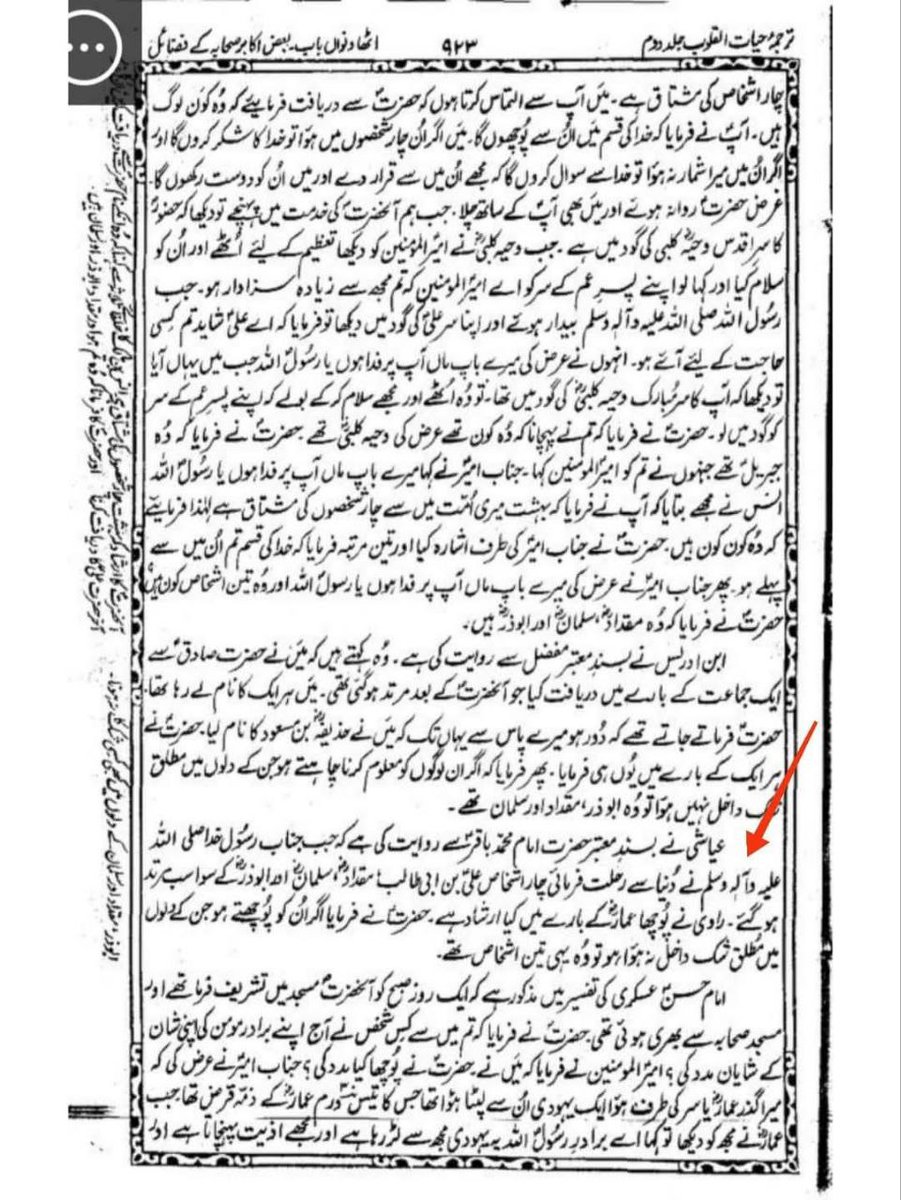 ترجمۂ حیات القلوب جلد دوم
۹۲۳
اٹھاونواں باب۔ بعض اکابر صحابہ کے فضائل
چار اشخاص کی مشتاق ہے۔ میں آپ سے التماس کرتا ہوں کہ حضرتؐ سے دریافت فرمایئے کہ وُہ کون لوگ
ہیں۔ آپؑ نے فرمایا کہ خدا کی قسم میں اُن سے پُوچھوں گا۔ میں اگر اُن چار شخصوں میں ہوُا تو خدا کا شکر کروں گا اور
اگر اُن میں میرا شمار نہ ہوُا تو خدا سے سوال کروں گا کہ مجھے اُن میں سے قرار دے اور میں اُن کو دوست رکھوں گا۔
غرض حضرتؑ روانہ ہوئے اور میں بھی آپؑ کے ساتھ چلا۔ جب ہم آنحضرتؐ کی خدمت میں پہنچے تو دیکھا کہ حضورؐ
کا سرِ اقدس دحیہؓ کلبی کی گود میں ہے۔ جب دحیہ کلبیؓ نے امیرالمومنینؑ کو دیکھا تعظیم کے لیئے اُٹھے اور اُن کو
سلام کیا اور کہا لو اپنے پسرِ عم کے سر کو اے امیرالمومنینؑ کہ تم مجھ سے زیادہ سزاوار ہو۔ جب
رسُول اللہ صلی اللہ علیہ وآلہٖ وسلم بیدار ہوئے اور اپنا سر علیؑ کی گود میں دیکھا تو فرمایا کہ اے علیؑ شاید تم کِسی
حاجت کے لیئے آئے ہو۔ انہوں نے عرض کی میرے باپ ماں آپ پر فدا ہوں یا رسُولؐ اللہ جب میں یہاں آیا
تو دیکھا کہ آپ کا سرِ مُبارک دحیہ کلبیؓ کی گود میں تھا۔ تو وُہ اُٹھے اور مجھے سلام کر کے بولے کہ اپنے پسرِ عم کے سر
کو گود میں لو۔ حضرتؐ نے فرمایا کہ تم نے پہچانا کہ وُہ کون تھے عرض کی دحیہ کلبیؓ تھے حضرتؐ نے فرمایا کہ وُہ
جبریلؑ تھے جنہوں نے تم کو امیرالمومنینؑ کہا۔ جناب امیرؑ نے کہا میرے باپ ماں آپ پر فدا ہوں یا رسُولؐ اللہ
انس نے مجھے بتایا کہ آپ نے فرمایا کہ بہشت میری اُمّت میں سے چار شخصوں کی مشتاق ہے لہٰذا فرمایئے
کہ وُہ کون کون ہیں۔ حضرتؐ نے جناب امیرؑ کی طرف اشارہ کیا اور تین مرتبہ فرمایا کہ خدا کی قسم تم اُن میں سے
پہلے ہو۔ پھر جناب امیرؑ نے عرض کی میرے باپ ماں آپ پر فدا ہوں یا رسُولؐ اللہ اور وُہ تین اشخاص کون ہیں
حضرتؐ نے فرمایا کہ وُہ مقدادؓ، سلمانؓ اور ابوذرؓ ہیں۔
ابن ادریس نے بسندِ معتبر مفضل سے روایت کی ہے۔ وُہ کہتے ہیں کہ میں نے حضرت صادقؑ سے
ایک جماعت کے بارے میں دریافت کیا جو آنحضرتؐ کے بعد مرتد ہو گئی تھی۔ میں ہر ایک کا نام لے رہا تھا۔
حضرتؑ فرماتے جاتے تھے کہ دُور ہو میرے پاس سے یہاں تک کہ میں نے حذیفہؓ بن مسعود کا نام لیا۔ حضرتؑ نے
ہر ایک کے بارے میں یُوں ہی فرمایا۔ پھر فرمایا کہ اگر ان لوگوں کو معلوم کرنا چاہتے ہو جن کے دلوں میں مطلق
شک داخل نہیں ہوُا تو وُہ ابوذر، مقداد اور سلمان تھے۔
عیاشی نے بسندِ معتبر حضرت امام محمد باقرؑ سے روایت کی ہے کہ جب جناب رسُول خدا صلی اللہ
علیہ وآلہٖ وسلم نے دُنیا سے رحلت فرمائی چار اشخاص علی بن ابی طالبؑ، مقدادؓ، سلمانؓ اور ابوذرؓ کے سوا سب مرتد
ہو گئے۔ راوی نے پُوچھا عمارؓ کے بارے میں کیا ارشاد ہے۔ حضرتؑ نے فرمایا اگر اُن کو پُوچھتے ہو جن کے دلوں
میں مُطلق شک داخل نہ ہوُا ہو تو وُہ یہی تین اشخاص تھے۔
امام حسن عسکریؑ کی تفسیر میں مذکور ہے کہ ایک روز صبح کو آنحضرتؐ مسجد میں تشریف فرما تھے اور
مسجد صحابہ سے بھری ہوئی تھی حضرتؐ نے فرمایا کہ تم میں سے کِس شخص نے آج اپنے برادر مومن کی اپنی شان
کے شایان مدد کی؟ امیرالمومنینؑ نے فرمایا کہ میں نے۔ حضرتؐ نے پُوچھا کیا مدد کی؟ جناب امیرؑ نے عرض کی کہ
میرا گذر عمارؓ یاسر کی طرف ہوُا ایک یہودی اُن سے لپٹا ہوُا تھا جس کا تیس درم عمارؓ کے ذمّہ قرض تھا۔ جب
عمارؓ نے مجھ کو دیکھا تو کہا اے برادرِ رسُولؐ اللہ یہ یہودی مجھ سے لڑ رہا ہے اور مجھے اذیت پہنچاتا ہے اور